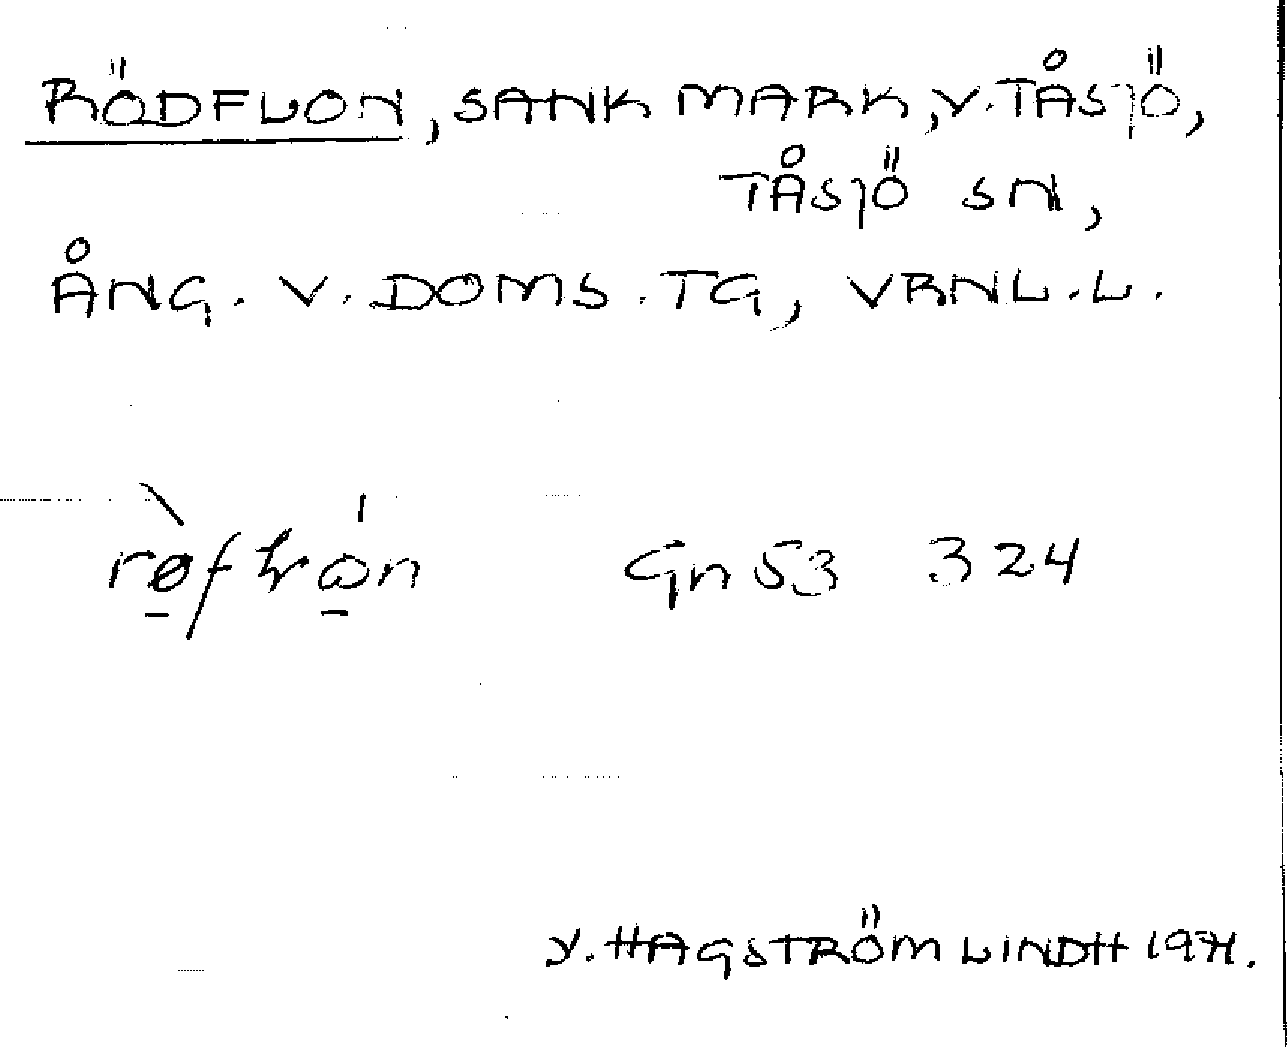 RÖDFLON, SANK MARK, Y. TÅSJÖ,
TÅSJÖ SN,
ÅNG. V. DOMS. TG, VRNL. L.
Gn 53 324
Y. HAGSTRÖM LINDH 1971.